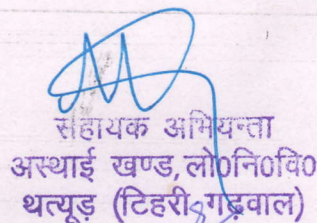 सहायक अभियन्ता
अस्थाई खण्ड, लो0नि0वि0
थत्यूड़ (टिहरी गढ़वाल)